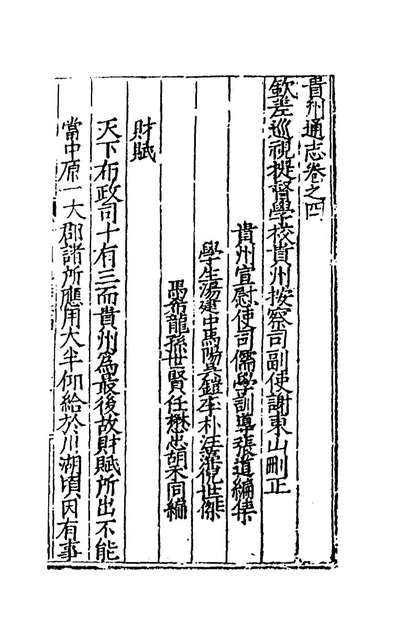 貴州通志卷之四
欽差巡視提督學校貴州按察司副使謝東山刪正
貴州宣慰使司儒學訓導張道編集
學生湯建中馬陽吳鎧李朴汪藻倪世傑
禹希龍孫世賢任懋忠胡木同編
財賦
天下布政司十有三而貴州為最後故財賦所出不能
當中原一大郡諸所應用大半仰給於川湖頃因有事